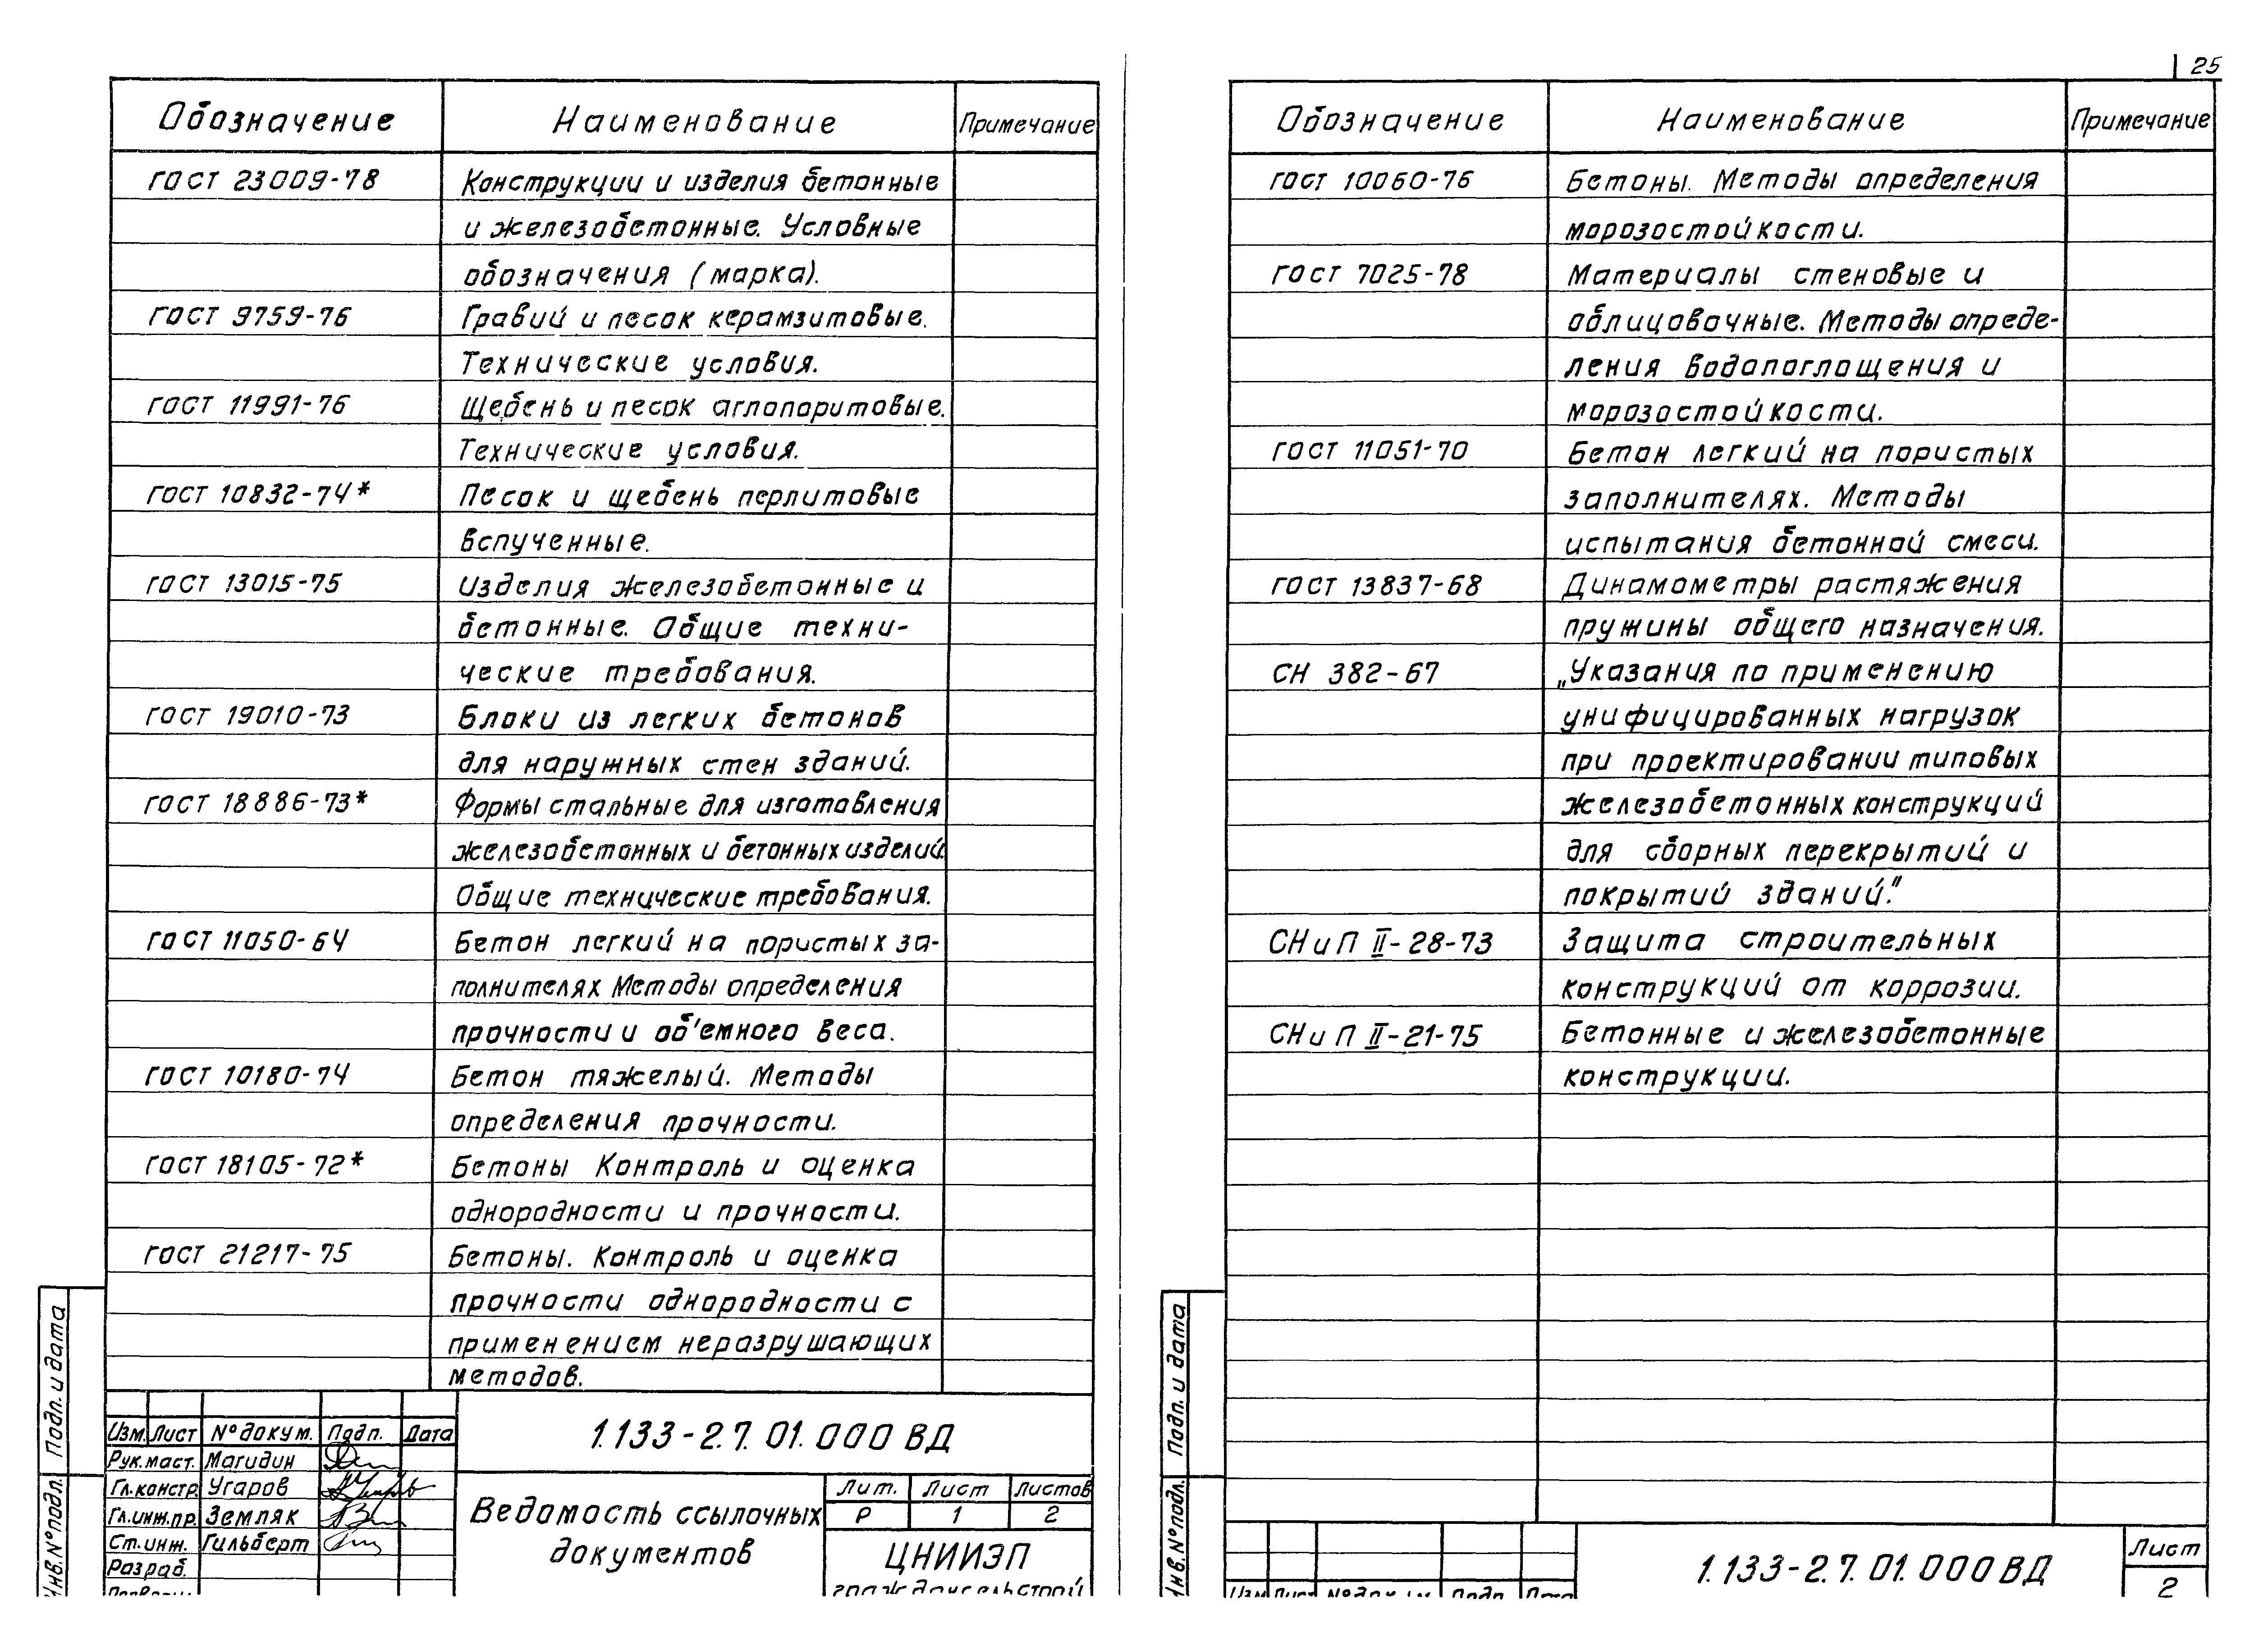 25
Обозначение Наименование Примечание
ГОСТ 23009-78 Конструкции и изделия бетонные
и железобетонные. Условные
обозначения (марка).
ГОСТ 9759-76 Гравий и песок керамзитовые.
Технические условия.
ГОСТ 11991-76 Щебень и песок аглопоритовые.
Технические условия.
ГОСТ 10832-74* Песок и щебень перлитовые
вспученные.
ГОСТ 13015-75 Изделия железобетонные и
бетонные. Общие техни-
ческие требования.
ГОСТ 19010-73 Блоки из легких бетонов
для наружных стен зданий.
ГОСТ 18886-73* Формы стальные для изготовления
железобетонных и бетонных изделий.
Общие технические требования.
ГОСТ 11050-64 Бетон легкий на пористых за-
полнителях Методы определения
прочности и об'емного веса.
ГОСТ 10180-74 Бетон тяжелый. Методы
определения прочности.
ГОСТ 18105-72* Бетоны Контроль и оценка
однородности и прочности.
ГОСТ 21217-75 Бетоны. Контроль и оценка
прочности однородности с
применением неразрушающих
методов.
Подп. и дата
Инв.№подл.
Изм. Лист №докум. Подп. Дата
Рук.маст. Магидин
Гл.констр. Угаров
Гл.инж.пр. Земляк
Ст.инж. Гильберт
Разраб.
1.133-2.7.01.000 ВД
Ведомость ссылочных
документов
Лит. Лист Листов
Р 1 2
ЦНИИЭП
Обозначение Наименование Примечание
ГОСТ 10060-76 Бетоны. Методы определения
морозостойкости.
ГОСТ 7025-78 Материалы стеновые и
облицовочные. Методы опреде-
ления водопоглощения и
морозостойкости.
ГОСТ 11051-70 Бетон легкий на пористых
заполнителях. Методы
испытания бетонной смеси.
ГОСТ 13837-68 Динамометры растяжения
пружины общего назначения.
СН 382-67 „Указания по применению
унифицированных нагрузок
при проектировании типовых
железобетонных конструкций
для сборных перекрытий и
покрытий зданий."
СНиП II-28-73 Защита строительных
конструкций от коррозии.
СНиП II-21-75 Бетонные и железобетонные
конструкции.
Подп. и дата
Инв.№подл.
Изм Лист №докум Подп Дата
1.133-2.7.01.000 ВД
Лист
2